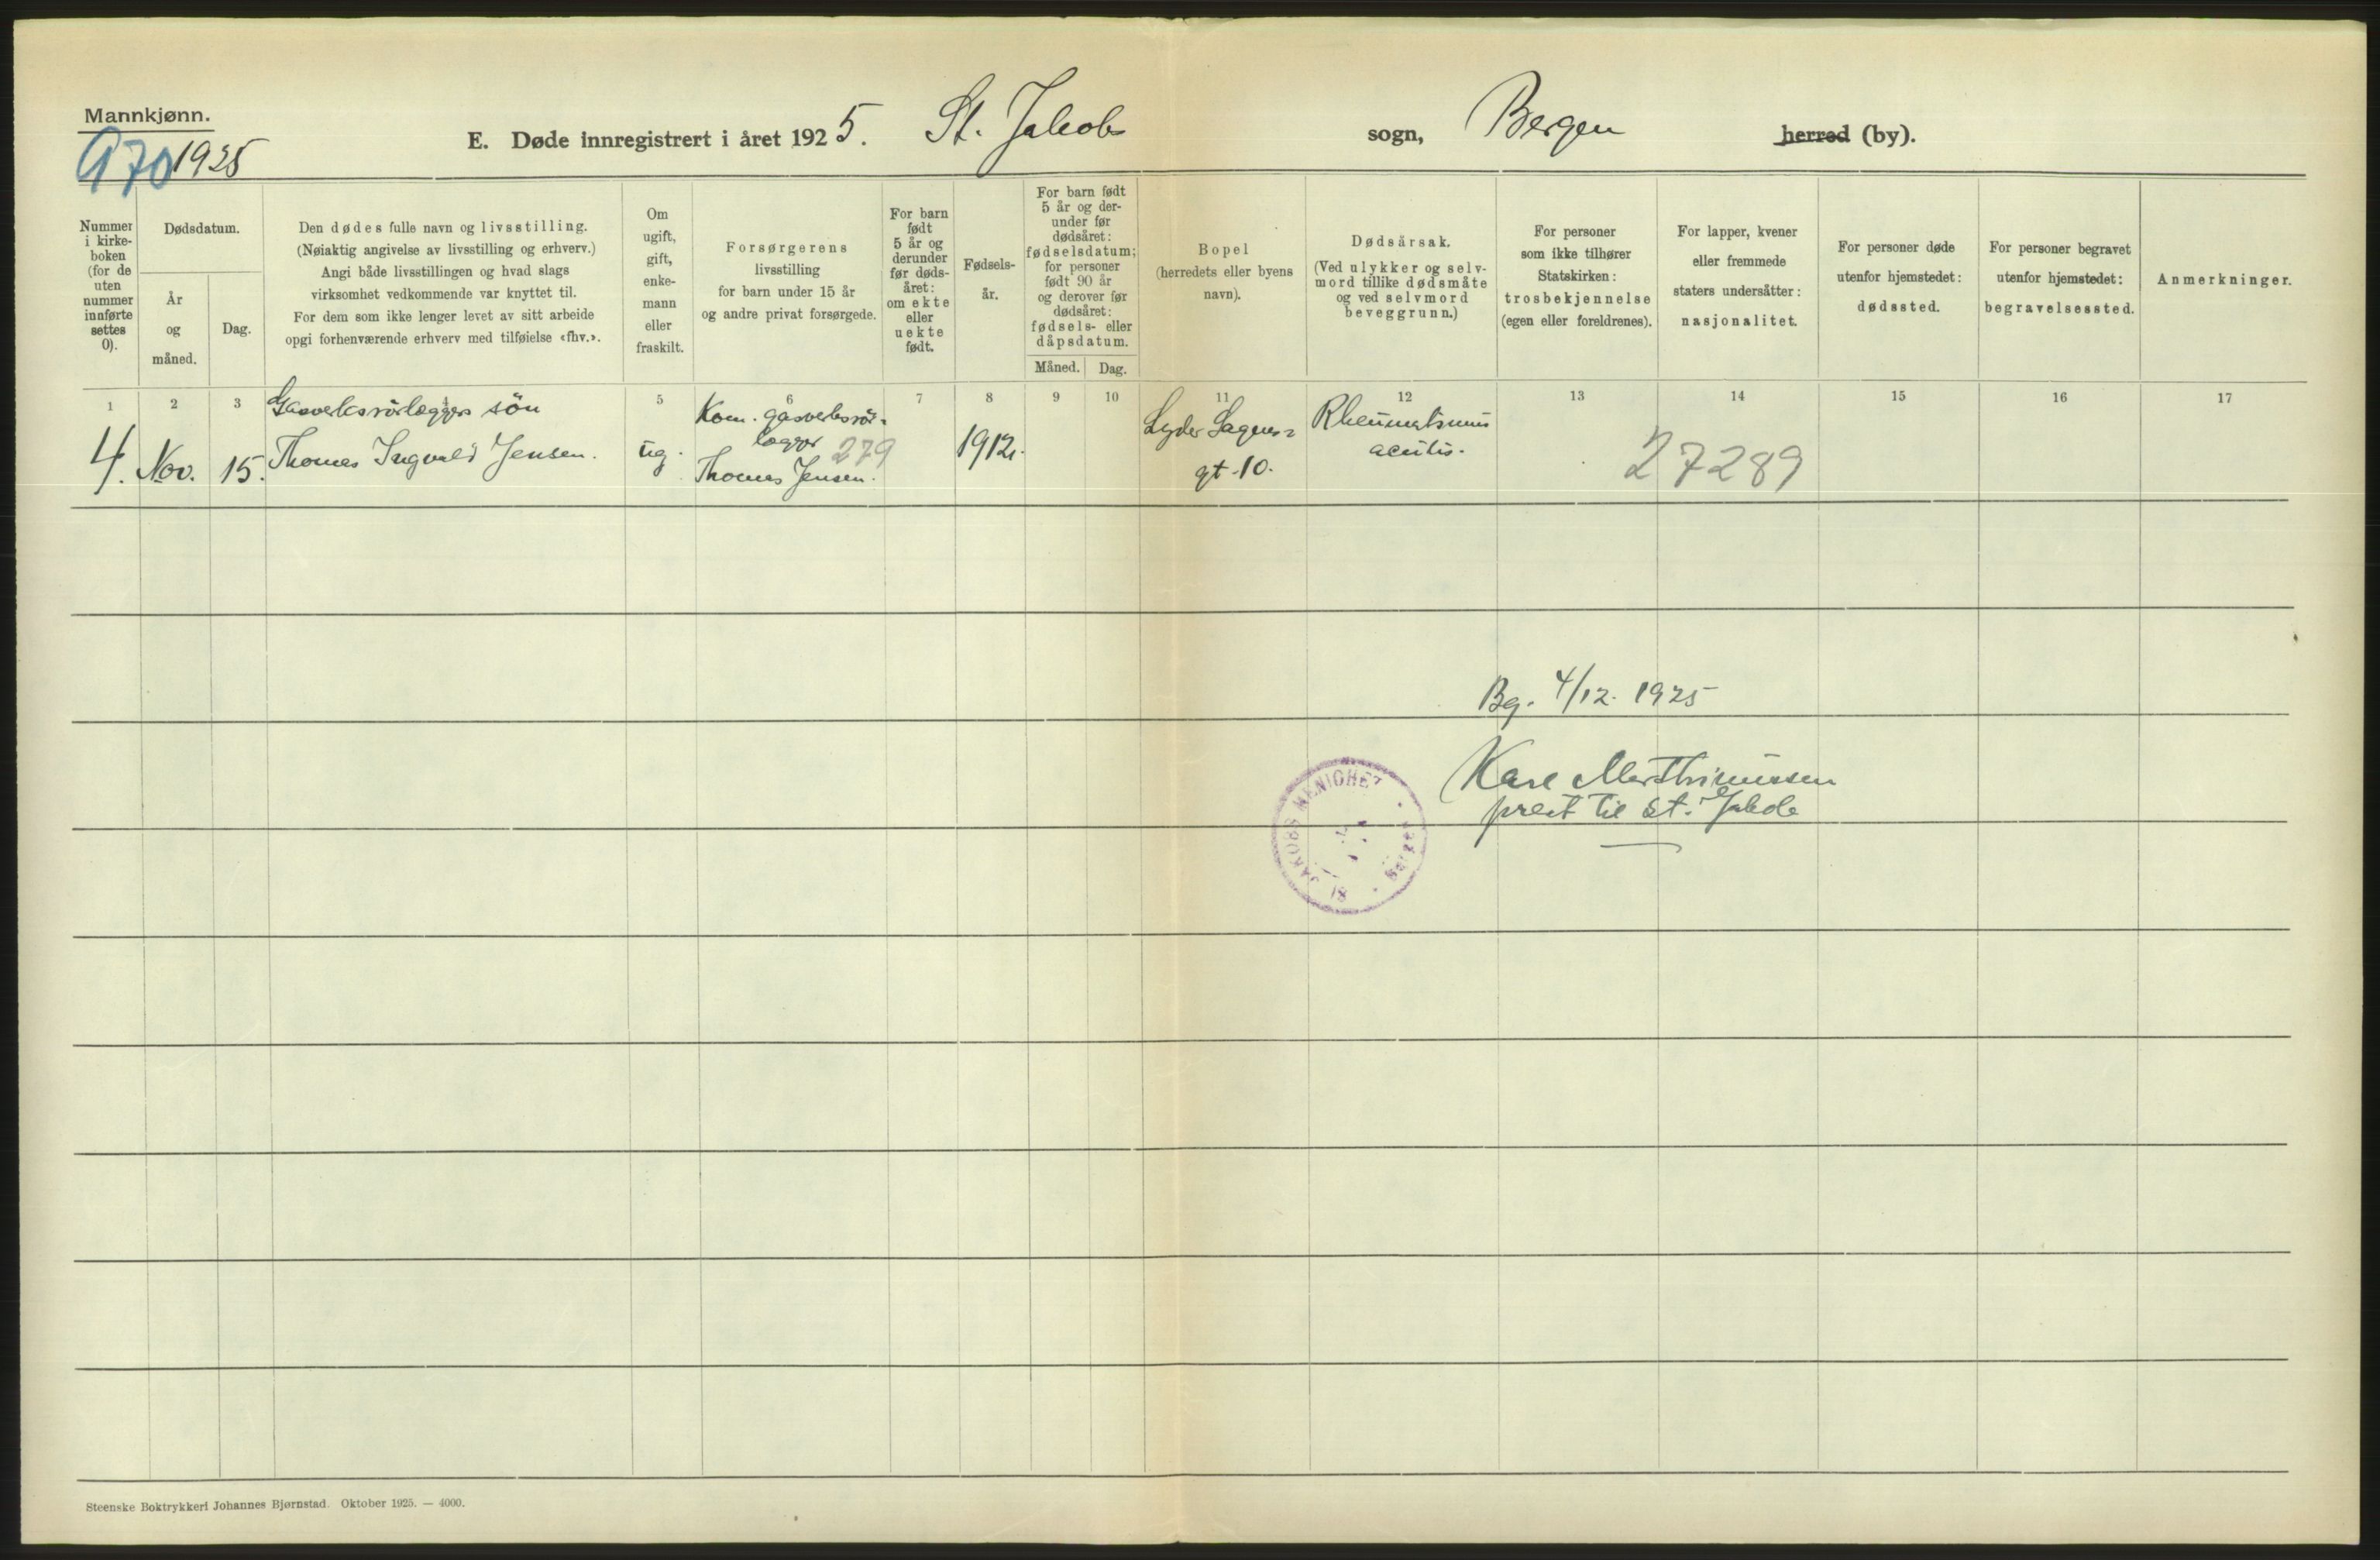 Mannkjønn.
970 1925
E. Døde innregistrert i året 1925. St. Jakob sogn, Bergen herred (by).
Nummer
i kirke-
boken
(for de
uten
nummer
innførte
settes
0).
Dødsdatum.
År
og
måned.
Dag.
Den dødes fulle navn og livsstilling.
(Nøiaktig angivelse av livsstilling og erhverv.)
Angi både livsstillingen og hvad slags
virksomhet vedkommende var knyttet til.
For dem som ikke lenger levet av sitt arbeide
opgi forhenværende erhverv med tilføielse «fhv.».
Om
ugift,
gift,
enke-
mann
eller
fraskilt.
Forsørgerens
livsstilling
for barn under 15 år
og andre privat forsørgede.
For barn
født
5 år og
derunder
før døds-
året:
om ekte
eller
uekte
født.
Fødsels-
år.
For barn født
5 år og der-
under før
dødsåret:
fødselsdatum;
for personer
født 90 år
og derover før
dødsåret:
fødsels- eller
dåpsdatum.
Måned. Dag.
Bopel
(herredets eller byens
navn).
Dødsårsak.
(Ved ulykker og selv-
mord tillike dødsmåte
og ved selvmord
beveggrunn.)
For personer
som ikke tilhører
Statskirken:
trosbekjennelse
(egen eller foreldrenes).
For lapper, kvener
eller fremmede
staters undersåtter:
nasjonalitet.
For personer døde
utenfor hjemstedet:
dødssted.
For personer begravet
utenfor hjemstedet:
begravelsessted.
Anmerkninger.
1 2 3 4 5 6 7 8 9 10 11 12 13 14 15 16 17
4. Nov. 15.
Gasverksrörlæggers sön
Thomas Ingvald Jensen.
ug.
Kom. gasverksrör-
lægger 279
Thomas Jensen.
1912.
Lyder Sagens
gt. 10.
Rheumatismus
acutis.
27289
Bg. 4/12. 1925
prest til St. Jakob
ST JAKOBS MENIGHET
Bergen
Steenske Boktrykkeri Johannes Bjørnstad. Oktober 1925. — 4000.